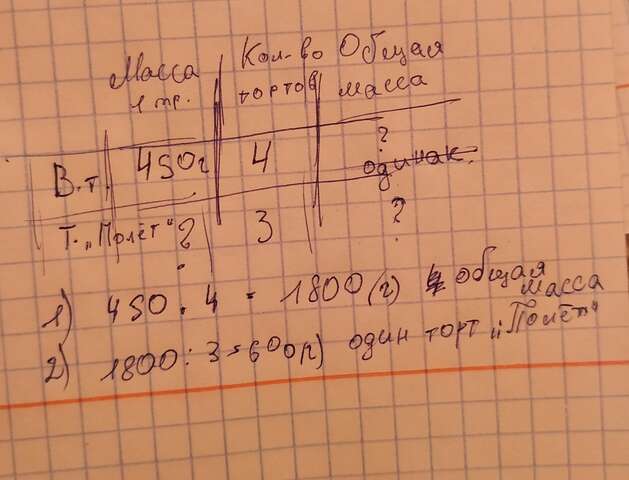 Масса Кол-во Общая
1 тр. тортов масса
В.т. 450г 4 ?
одинак.
Т. „Полёт“ ? 3 ?
1) 450 · 4 = 1800 (г) общая масса
2) 1800 : 3 = 600(г) один торт „Полёт“